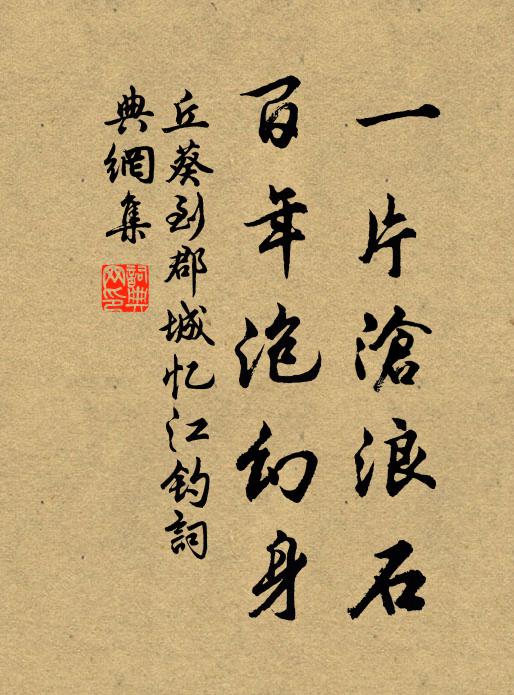 一片滄浪石
百年泡幻身
丘葵到郡城忆江钓詞
典網集
詞典
网印